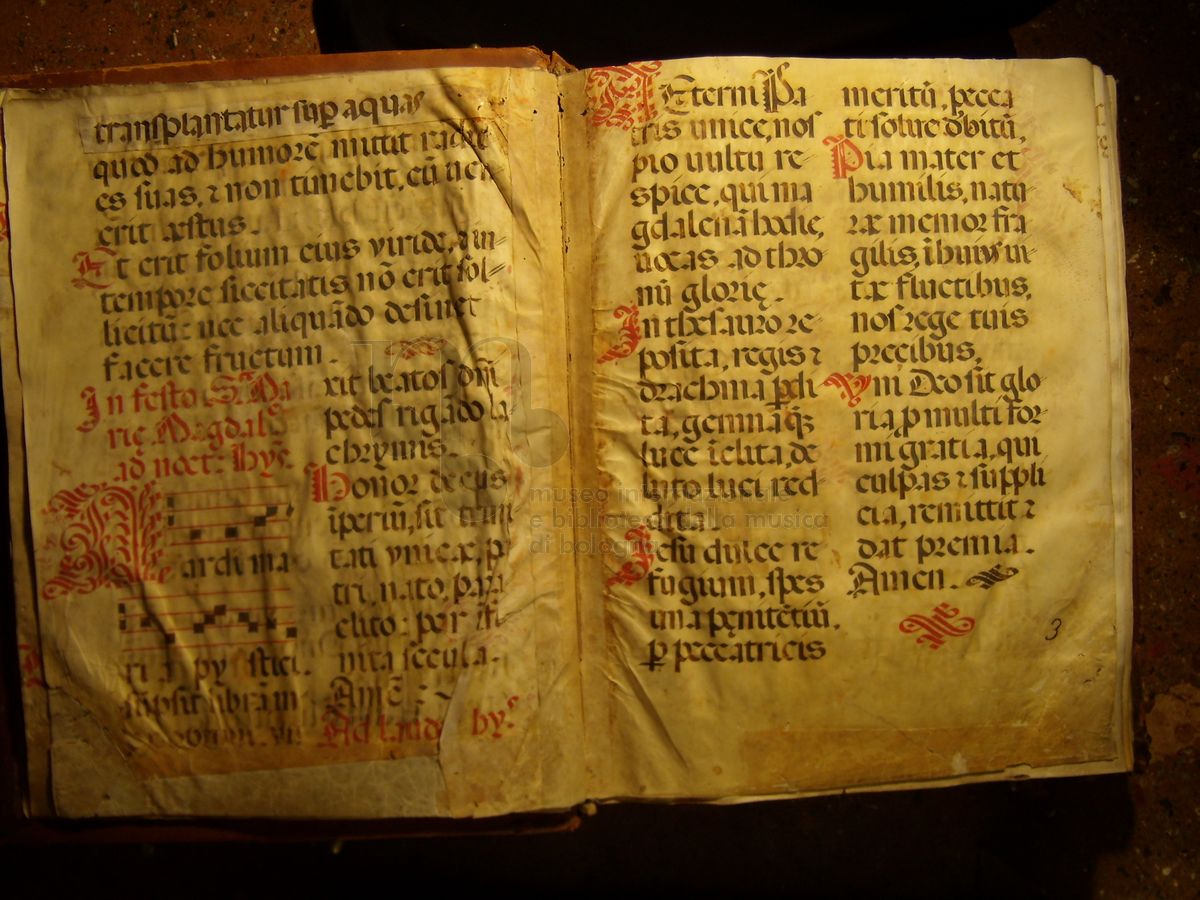 transplantatur sup̱ aquas
quod ad humorē mittit radic
es suas, ⁊ non timebit, cū uen
erit æstus.
Et erit folium eius viride, ⁊ in
tempore siccitatis nō erit sol-
licitū: nec aliquādo desinet
facere fructum.
In festo S. Ma
rię Magdal.
ad noct. hyᵉ.
Nardi ma
ri a py stici
sūpsit librā m
xit beatos dn̄i
pedes rigādo la
chrymis.
Honor decus
īperiū, sit trini
tati vnicæ, pa
tri, nato, para
clito: per īfi
nita secula.
Amē :~
Ad laud hyᵉ
Æterni Pa
tris unice, nos
pio uultu re
spice, qui ma
gdalenā hodie,
uocas ad thro
nū glorię.
In thesauro re-
posita, regis ⁊
drachma p̱di
ta, gemmaq̄ꝫ
luce īclita, de
luto luci red
dita.
Iesu dulce re
fugium, spes
una pęnitētiū,
p̱ peccatricis
meritū, pecca
ti solue dbitū,
Pia mater et
humilis, natu
ræ memor fra
gilis, ī huius ui
tæ fluctibus,
nos rege tuis
precibus.
Vni Deo sit glo
ria, p multi for-
mi gratia, qui
culpas ⁊ suppli
cia, remittit ⁊
dat premia.
Amen.
3
museo internazionale
e biblioteca della musica
di bologna